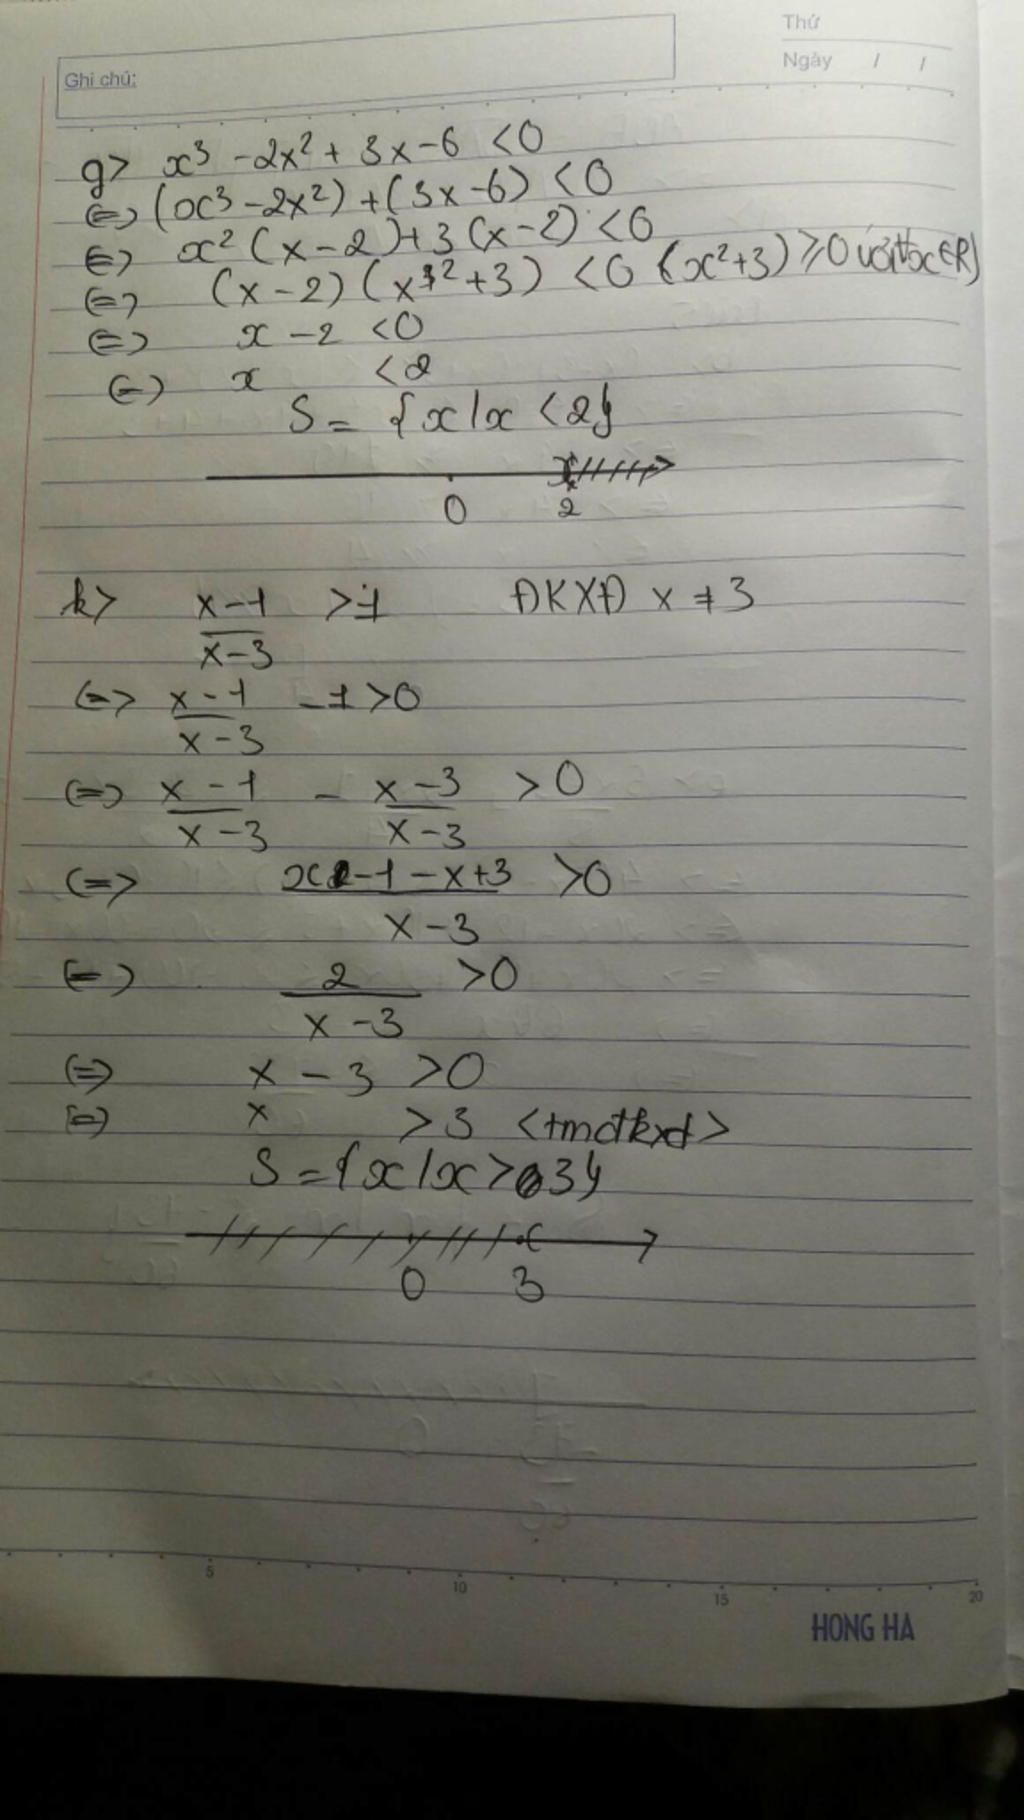 Thứ
Ngày / /
Ghi chú:
g> x³ - 2x² + 3x - 6 < 0
<=> (x³ - 2x²) + (3x - 6) < 0
<=> x² (x - 2) + 3 (x - 2) < 0
<=> (x - 2) (x² + 3) < 0 (x² + 3) ≥ 0 với ∀x ∈ R)
<=> x - 2 < 0
<=> x < 2
S = {x / x < 2}
0 2
k> x-1 / x-3 > 1 ĐKXĐ x ≠ 3
<=> x-1 / x-3 - 1 > 0
<=> x-1 / x-3 - x-3 / x-3 > 0
<=> x-1-x+3 / x-3 > 0
<=> 2 / x-3 > 0
<=> x - 3 > 0
<=> x > 3 <tmđkxđ>
S = {x / x > 3}
0 3
5 10 15 20
HONG HA